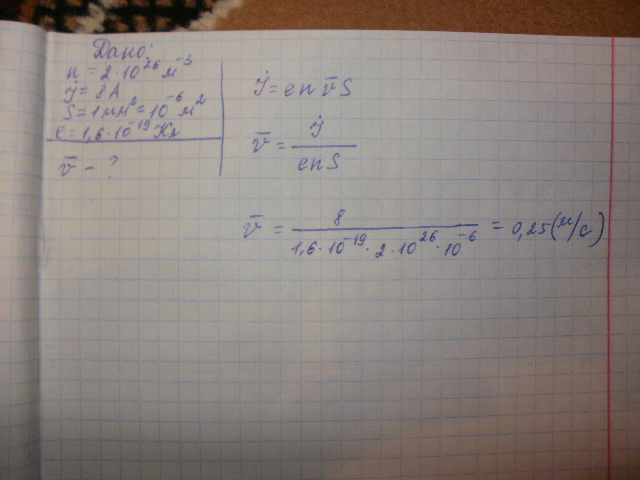 Дано:
n = 2·10²⁶ м⁻³
J = 8 А
S = 1 мм² = 10⁻⁶ м²
e = 1,6·10⁻¹⁹ Кл
v̅ - ?
J = e n v̅ S
v̅ = J / enS
v̅ = 8 / 1,6·10⁻¹⁹·2·10²⁶·10⁻⁶ = 0,25 (м/с)